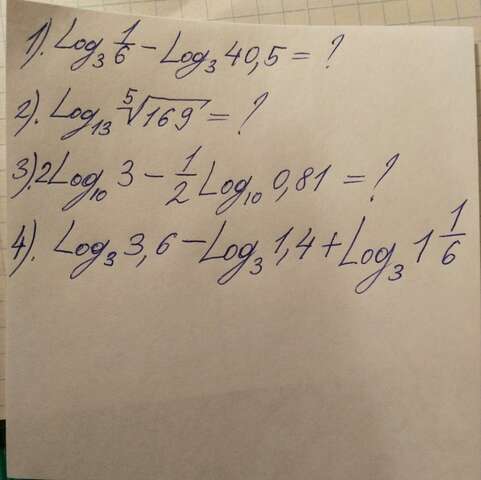 1). Log₃ 1/6 - Log₃ 40,5 = ?
2). Log₁₃ ⁵√169 = ?
3). 2Log₁₀ 3 - 1/2 Log₁₀ 0,81 = ?
4). Log₃ 3,6 - Log₃ 1,4 + Log₃ 1 1/6